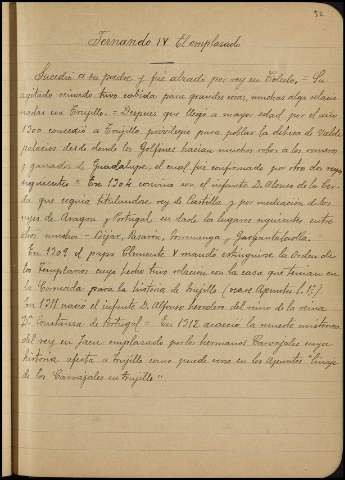 52
Fernando IV El emplasado
Sucedió a su padre y fué alzado por rey en Toledo. = Su
agitado reinado tuvo cabida para grandes cosas, muchas de
nadas con Trujillo. = Despues que llegó a mayor edad por el año
1300 concedió a Trujillo privilegio para poblar la dehesa de Valde
palacios desde donde los Golfines hacian muchos robos a los
y ganados de Guadalupe, el cual fué confirmado por otro dos reyes
siguientes = En 1304 convino con el infante D. Alonso de la Cer
da que seguia titulandose rey de Castilla y por mediacion de los
reyes de Aragon y Portugal en darle los lugares siguientes entre
otros muchos - Béjar, Gargantalaolla.
En 1309 el papa Clemente V mandó extinguirse la Orden de
los Templarios cuyo hecho tuvo relacion con la casa que tenian en
la Coronada para la historia de Trujillo (vease Apuntes
En 1311 nació el infante D. Alfonso heredero del reino de la reina
Dª Constanza de Portugal = En 1312 acaeció la muerte misteriosa
del rey en Jaen emplasado por los hermanos Carvajales cuya
historia afecta a Trujillo como puede verse en los Apuntes "linaje
de los Carvajales en Trujillo".